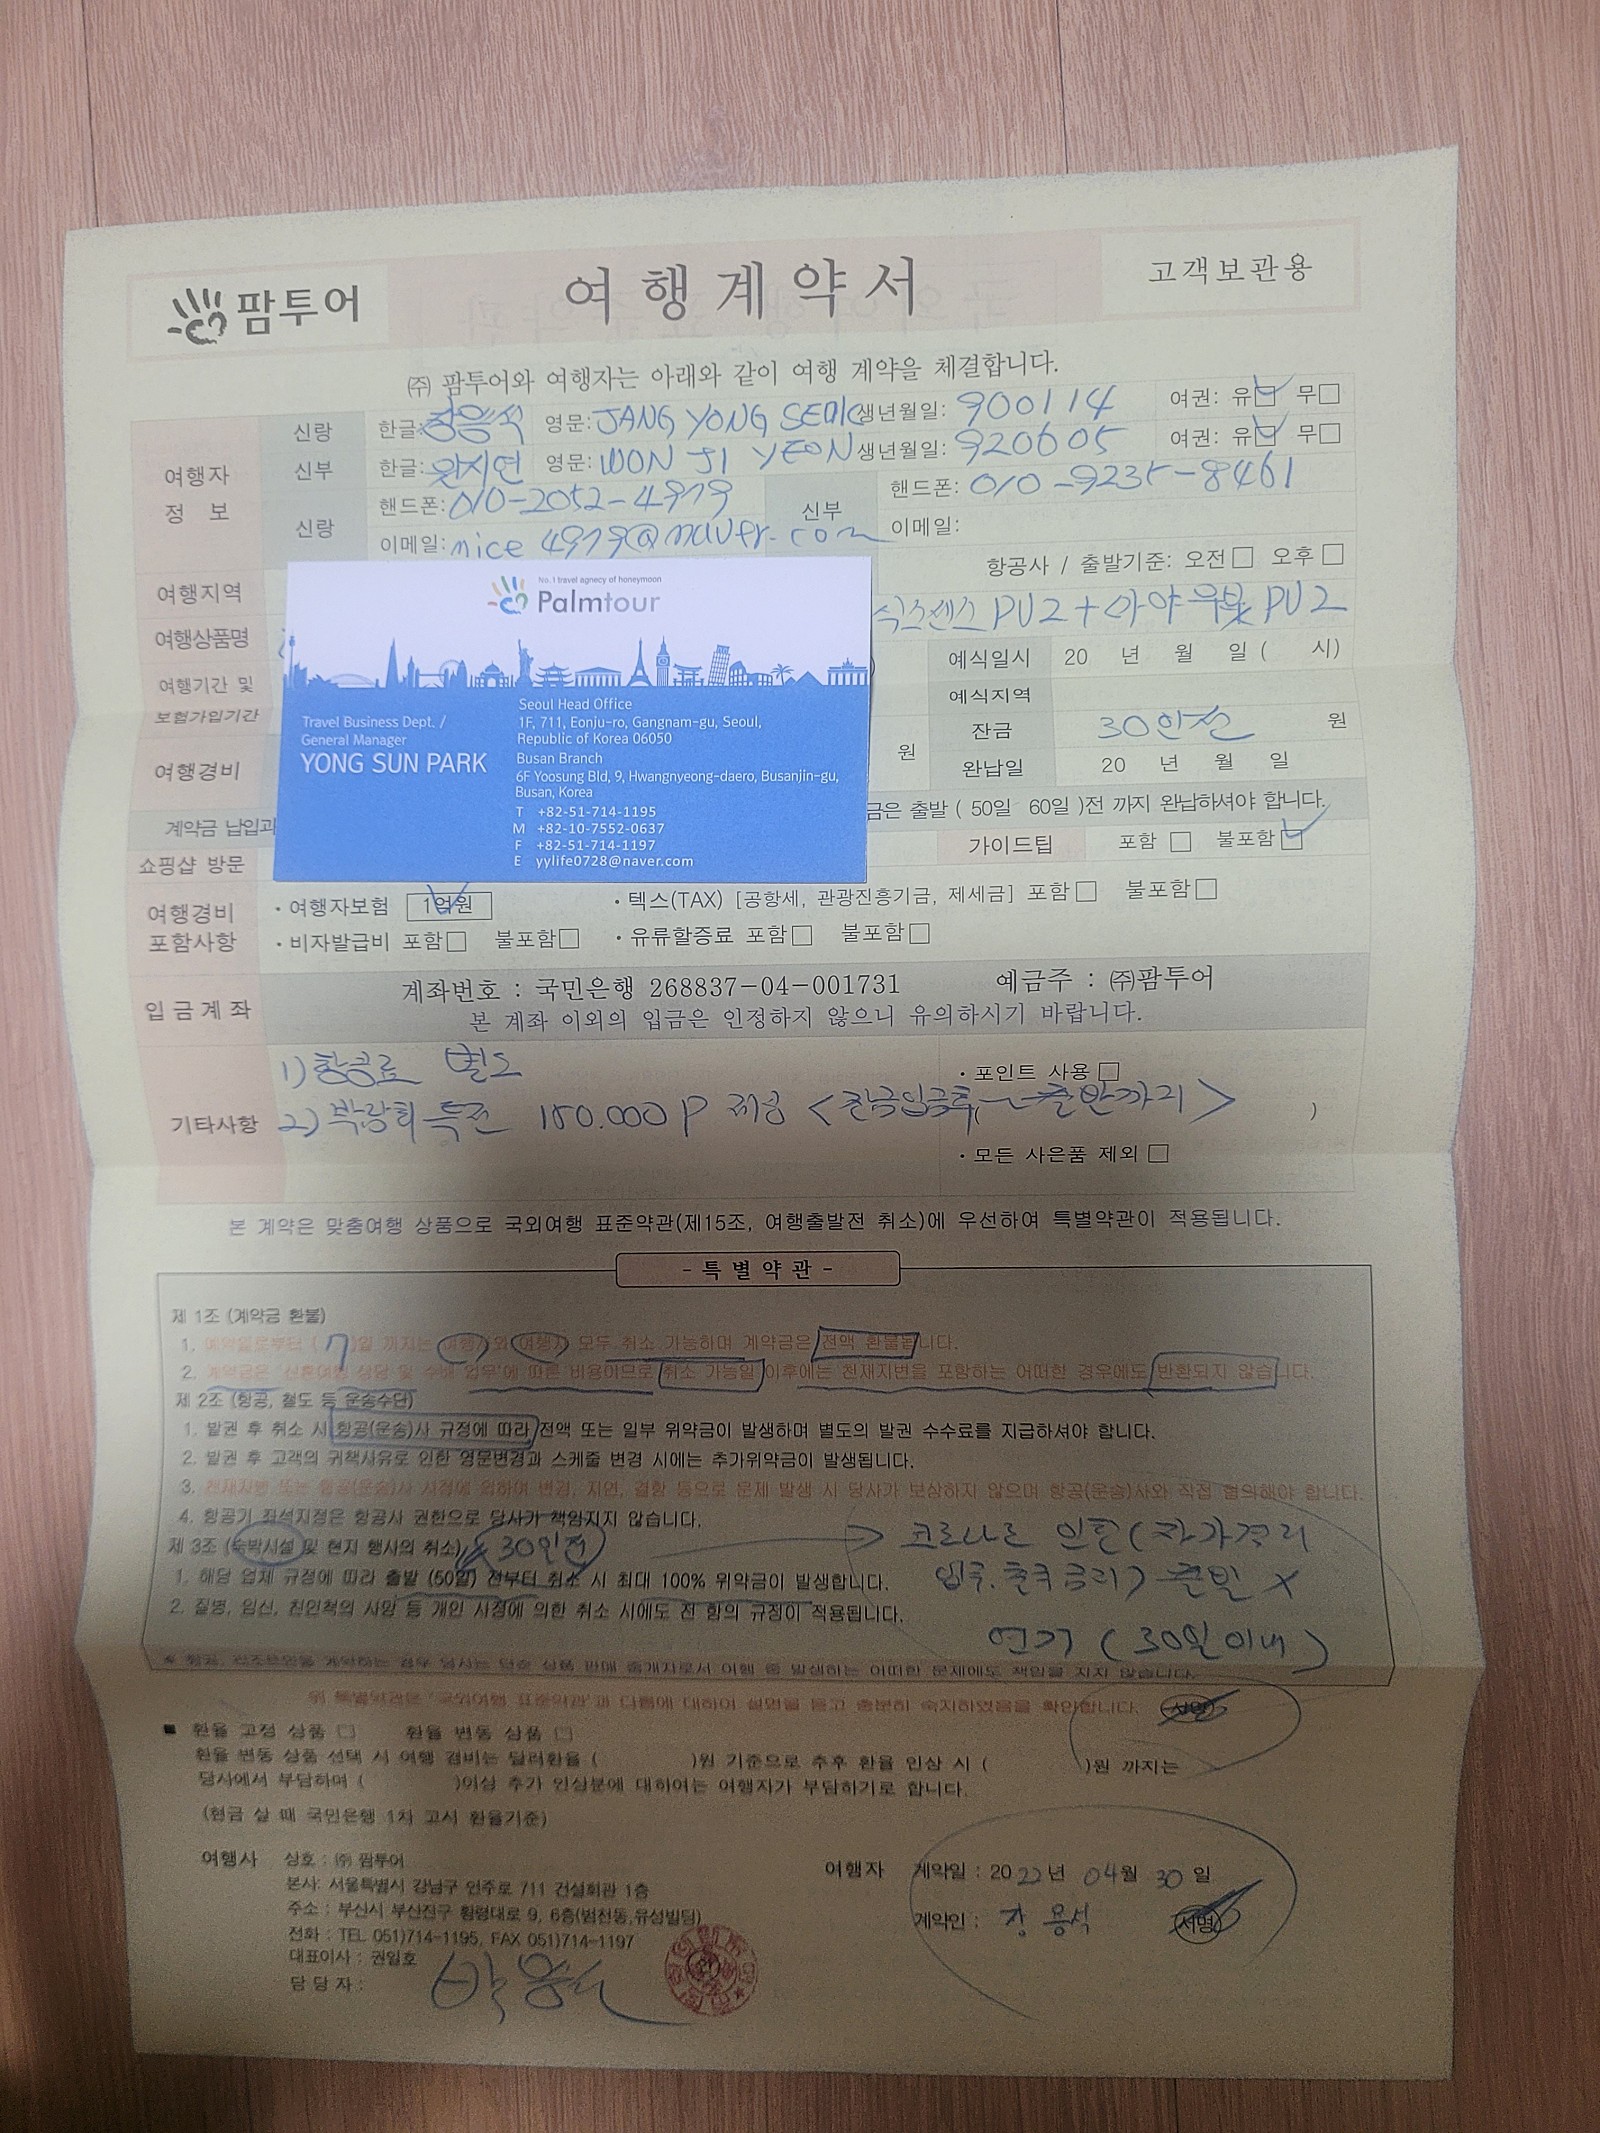 팜투어
여행계약서
고객보관용
㈜ 팜투어와 여행자는 아래와 같이 여행 계약을 체결합니다.
여행자 정 보
신랑 한글: 장용석 영문: JANG YONG SEOK 생년월일: 900114 여권: 유☑ 무☐
신부 한글: 원지연 영문: WON JI YEON 생년월일: 920605 여권: 유☑ 무☐
신랑 핸드폰: 010-2052-4979 신부 핸드폰: 010-9235-8461
이메일: nice4979@naver.com 이메일:
여행지역 항공사 / 출발기준: 오전☐ 오후☐
여행상품명 식스센스 PU2 + 아야우붓 PU2
여행기간 및 보험가입기간 예식일시 20 년 월 일 ( 시)
예식지역
여행경비 원 잔금 30일전 원
완납일 20 년 월 일
계약금 납입과 금은 출발 ( 50일 60일 )전 까지 완납하셔야 합니다.
쇼핑샵 방문 가이드팁 포함☐ 불포함☑
여행경비 포함사항
· 여행자보험 1억원 · 텍스(TAX) [공항세, 관광진흥기금, 제세금] 포함☐ 불포함☐
· 비자발급비 포함☐ 불포함☐ · 유류할증료 포함☐ 불포함☐
입금계좌 계좌번호 : 국민은행 268837-04-001731 예금주 : ㈜팜투어
본 계좌 이외의 입금은 인정하지 않으니 유의하시기 바랍니다.
기타사항
1) 항공료 별도
· 포인트 사용☐
2) 박람회 특전 150.000P 제공 <잔금입금후, 출발까지> )
· 모든 사은품 제외☐
No.1 travel agnecy of honeymoon
Palmtour
Travel Business Dept. /
General Manager
YONG SUN PARK
Seoul Head Office
1F, 711, Eonju-ro, Gangnam-gu, Seoul,
Republic of Korea 06050
Busan Branch
6F Yoosung Bld, 9, Hwangnyeong-daero, Busanjin-gu,
Busan, Korea
T +82-51-714-1195
M +82-10-7552-0637
F +82-51-714-1197
E yylife0728@naver.com
본 계약은 맞춤여행 상품으로 국외여행 표준약관(제15조, 여행출발전 취소)에 우선하여 특별약관이 적용됩니다.
- 특별약관 -
제 1조 (계약금 환불)
1. 예약일로부터 ( 7 )일 까지는 여행사와 여행자 모두 취소 가능하며 계약금은 전액 환불됩니다.
2. 계약금은 '신혼여행 상담 및 수배 업무'에 따른 비용이므로 취소 가능일 이후에는 천재지변을 포함하는 어떠한 경우에도 반환되지 않습니다.
제 2조 (항공, 철도 등 운송수단)
1. 발권 후 취소 시 항공(운송)사 규정에 따라 전액 또는 일부 위약금이 발생하며 별도의 발권 수수료를 지급하셔야 합니다.
2. 발권 후 고객의 귀책사유로 인한 영문변경과 스케줄 변경 시에는 추가위약금이 발생됩니다.
3. 천재지변 또는 항공(운송)사 사정에 의하여 변경, 지연, 결항 등으로 문제 발생 시 당사가 보상하지 않으며 항공(운송)사와 직접 협의해야 합니다.
4. 항공기 좌석지정은 항공사 권한으로 당사가 책임지지 않습니다.
제 3조 (숙박시설 및 현지 행사의 취소) 30일전 → 코로나로 인한 (자가격리
1. 해당 업체 규정에 따라 출발 (50일) 전부터 취소 시 최대 100% 위약금이 발생합니다. 입국. 출국 금지) 출발 X
2. 질병, 임신, 친인척의 사망 등 개인 사정에 의한 취소 시에도 전 항의 규정이 적용됩니다.
연기 (30일이내)
※ 항공, 리조트만을 계약하는 경우 당사는 단순 상품 판매 중개자로서 여행 중 발생하는 어떠한 문제에도 책임을 지지 않습니다.
위 특별약관은 '국외여행 표준약관'과 다름에 대하여 설명을 듣고 충분히 숙지하였음을 확인합니다. 서명
■ 환율 고정 상품 ☐ 환율 변동 상품 ☐
환율 변동 상품 선택 시 여행 경비는 달러환율 ( )원 기준으로 추후 환율 인상 시 ( )원 까지는
당사에서 부담하며 ( )이상 추가 인상분에 대하여는 여행자가 부담하기로 합니다.
(현금 살 때 국민은행 1차 고시 환율기준)
여행사 상호 : ㈜ 팜투어
본사: 서울특별시 강남구 언주로 711 건설회관 1층
주소 : 부산시 부산진구 황령대로 9, 6층(범천동,유성빌딩)
전화 : TEL 051)714-1195, FAX 051)714-1197
대표이사 : 권일호
담 당 자 :
여행자 계약일 : 2022년 04월 30일
계약인 : 장용석 서명